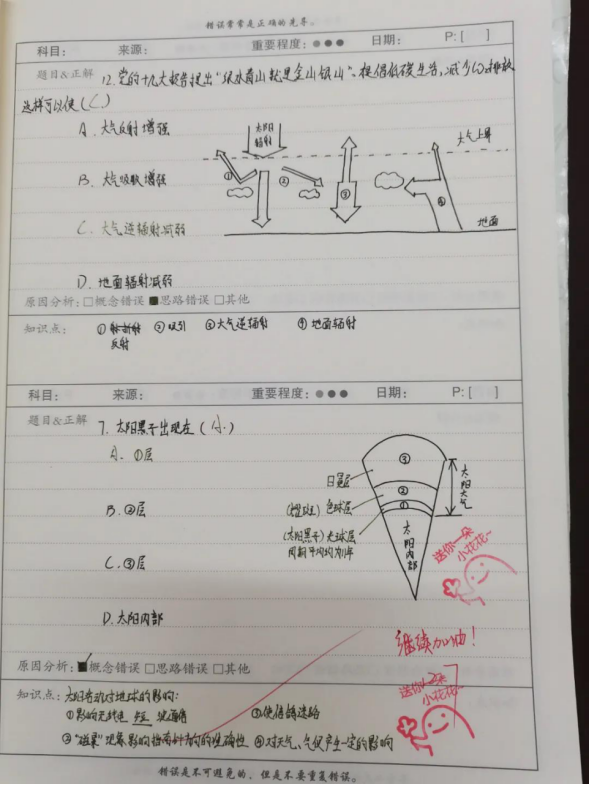 错误常常是正确的先导。
科目: 来源: 重要程度: 日期: P:[ ]
题目&正解 12.党的十九大报告提出"绿水青山就是金山银山"。提倡低碳生活,减少CO₂排放
这样可以使(C)
A.大气反射增强
B.大气吸收增强
C.大气逆辐射减弱
D.地面辐射减弱
太阳
辐射
大气上界
① ② ③ ④
地面
原因分析:□概念错误 ■思路错误 □其他
知识点: ① 反射 ②吸引 ③大气逆辐射 ④地面辐射
科目: 来源: 重要程度: 日期: P:[ ]
题目&正解 7.太阳黑子出现在(A.)
A.①层
B.②层
C.③层
D.太阳内部
③
日冕层
②
(耀斑)色球层
①
(太阳黑子)光球层
周期平均约为11年
太阳内部
太阳大气
送你一朵
小花花~
继续加油!
原因分析:■概念错误 □思路错误 □其他
知识点:太阳活动对地球的影响:
①影响无线电短波通信 ③使信鸽迷路
②"磁暴"现象影响指南针指向的准确性 ④对天气、气候产生一定的影响
送你2朵
小花花~
错误是不可避免的,但是不要重复错误。